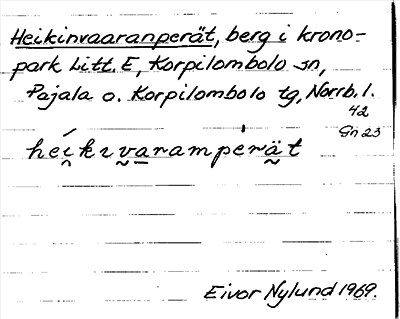 Heikinvaaranperät, berg i krono-
park Litt. E, Korpilombolo sn,
Pajala o. Korpilombolo tg, Norrb. l.
42
Gn 23
héi̯kiv̬a̱rampèrä̬t
Eivor Nylund 1969.